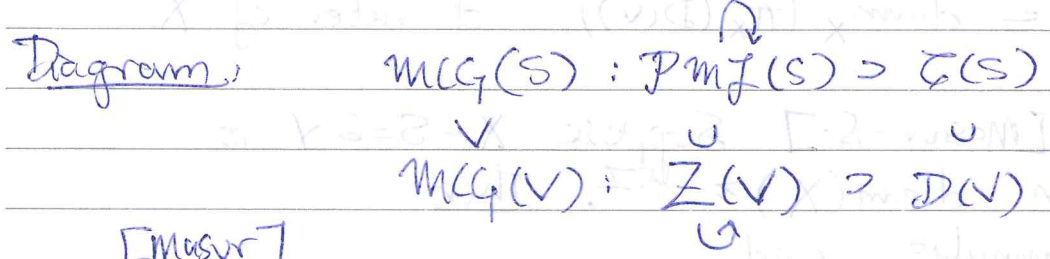 Diagram: MCG(S) : PML(S) ⊃ C(S)
∨ ∪ ∪
MCG(V) : Z(V) ⊃ D(V)
[Masur]